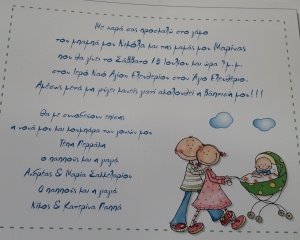 Με χαρά σας προσκαλώ στο γάμο
του μπαμπά μου Νικόλα και της μαμάς μου Μαρίνας
που θα γίνει το Σάββατο 18 Ιουλίου και ώρα 7μ.μ.
στον Ιερό Ναό Αγίου Ελευθερίου στον Άγιο Ελευθέριο.
Αμέσως μετά μα ρίχνει κανείς γιατί ακολουθεί η βάπτισή μου!!!
Θα με συνοδεύουν επίσης
η νονά μου και κουμπάρα των γονιών μου
Τέπη
ο παππούς και η γιαγιά
Ανδρέας & Μαρία
Ο παππούς και η γιαγιά
Νίκος & Κατερίνα Παππά